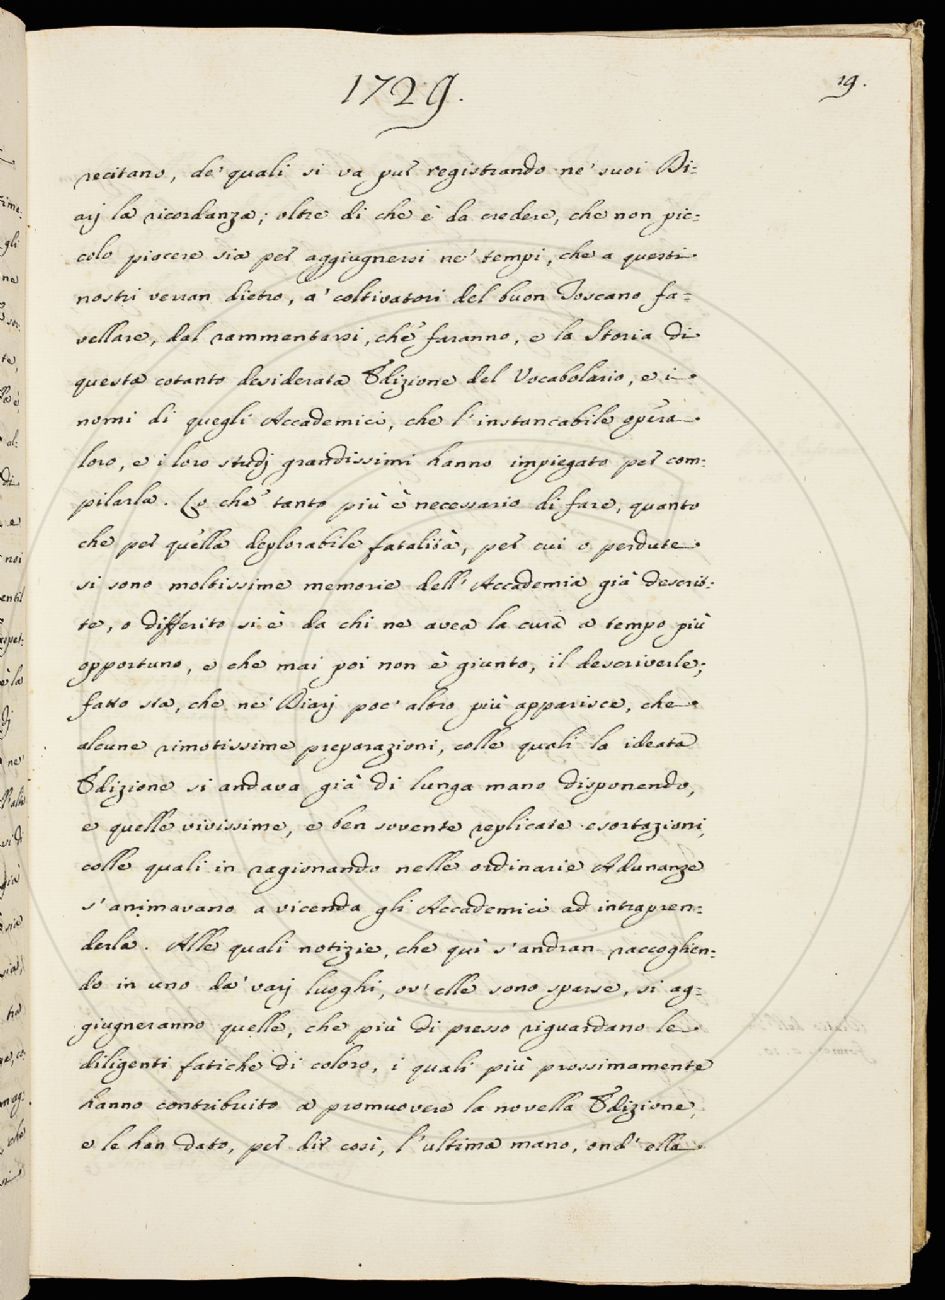 1729.
19.
recitano, de' quali si va pur registrando ne' suoi Di=
arj la ricordanza; oltre di che è da credere, che non pic=
colo piacere sia per aggiugnersi ne' tempi, che a questi
nostri verran dietro, a' coltivatori del buon Toscano fa=
vellare, dal rammentarsi, che faranno, e la Storia di
questa cotanto desiderata Edizione del Vocabolario, e i
nomi di quegli Accademici, che l'instancabile opera
loro, e i loro studj grandissimi hanno impiegato per com=
pilarla. Lo che tanto più è necessario di fare, quanto
che per quella deplorabile fatalità, per cui o perdute
si sono moltissime memorie dell'Accademia già descrit=
te, o differito si è da chi ne avea la cura a tempo più
opportuno, e che mai poi non è giunto, il descriverle;
fatto sta, che ne' Diarj poc' altro più apparisce, che
alcune rimotissime preparazioni, colle quali la ideata
Edizione si andava già di lunga mano disponendo,
e quelle vivissime, e ben sovente replicate esortazioni,
colle quali in ragionando nelle ordinarie Adunanze
s'animavano a vicenda gli Accademici ad intrapren=
derla. Alle quali notizie, che qui s'andran raccoglien=
do in uno da' varj luoghi, ov' elle sono sparse, si ag=
giugneranno quelle, che più di presso riguardano le
diligenti fatiche di coloro, i quali più prossimamente
hanno contribuito a promuovere la novella Edizione,
e le han dato, per dir così, l'ultima mano, ond' ella